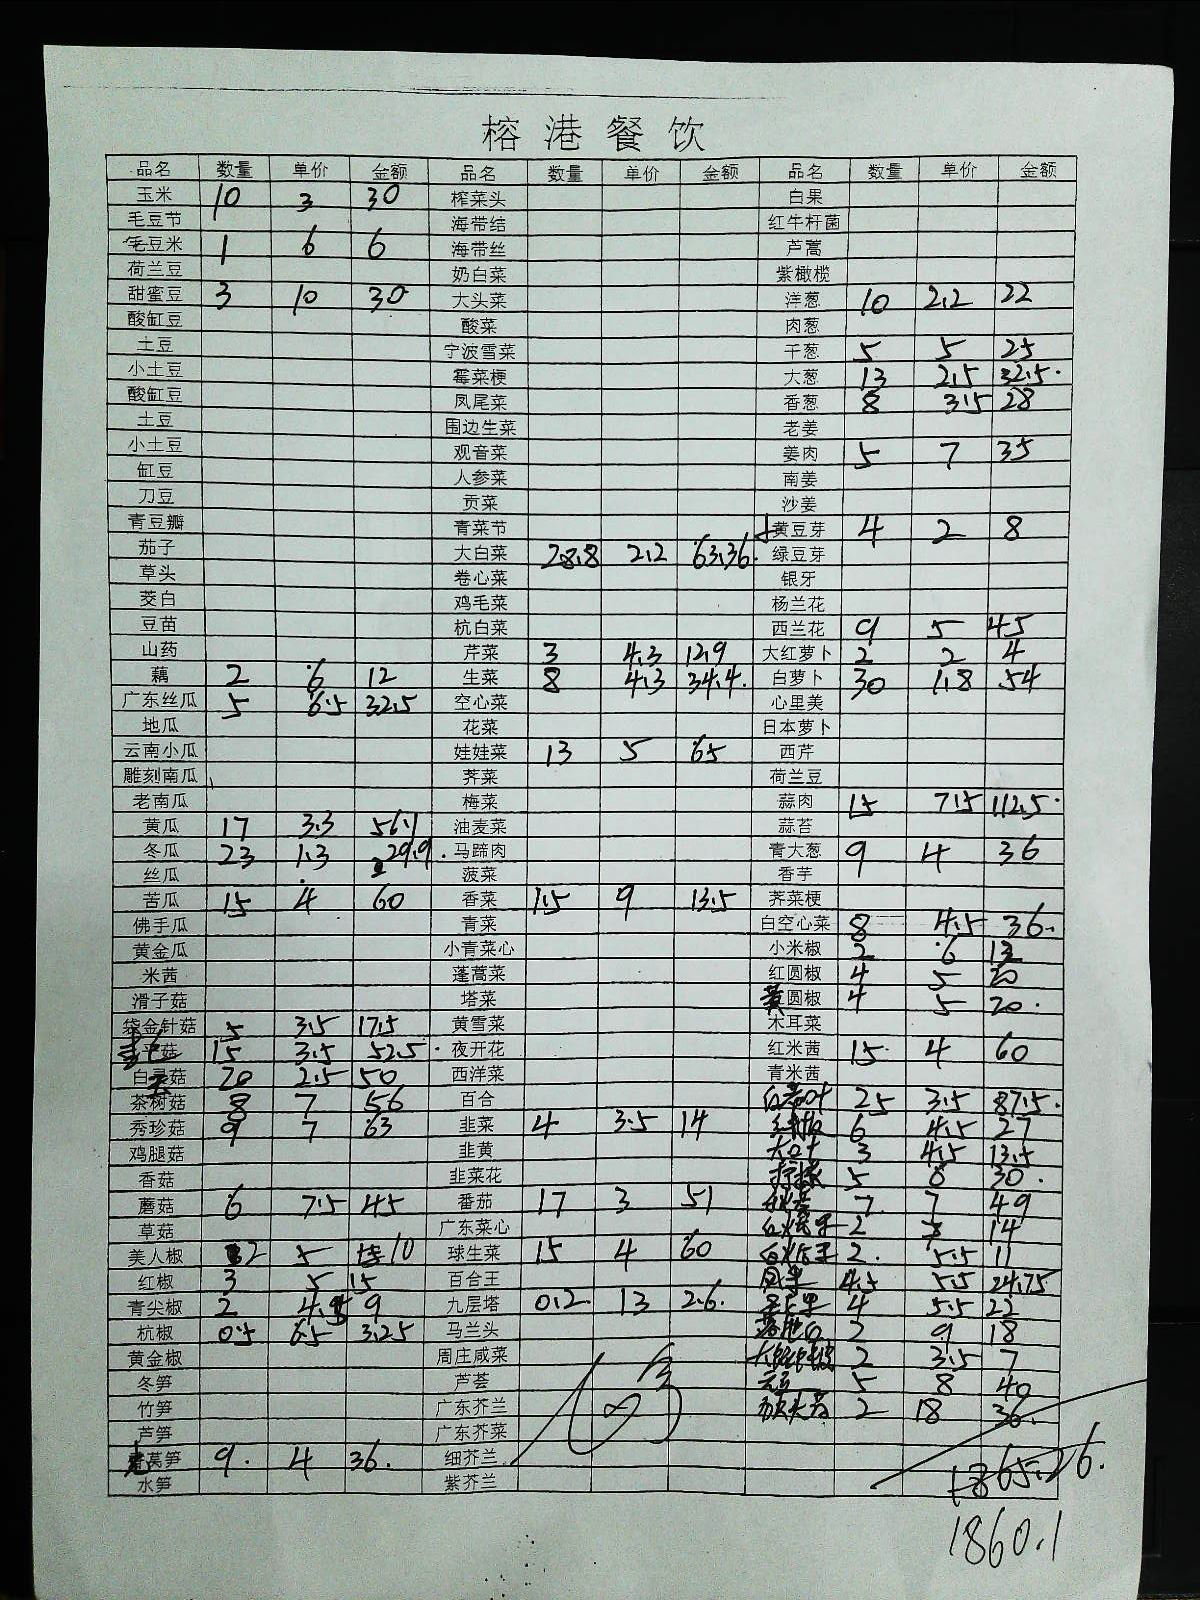 榕港餐饮
品名 数量 单价 金额 品名 数量 单价 金额 品名 数量 单价 金额
玉米 10 3 30 榨菜头 白果
毛豆节 海带结 红牛杆菌
毛豆米 1 6 6 海带丝 芦蒿
荷兰豆 奶白菜 紫橄榄
甜蜜豆 3 10 30 大头菜 洋葱 10 2.2 22
酸缸豆 酸菜 肉葱
土豆 宁波雪菜 干葱 5 5 25
小土豆 霉菜梗 大葱 13 2.5 32.5
酸缸豆 凤尾菜 香葱 8 3.5 28
土豆 围边生菜 老姜
小土豆 观音菜 姜肉 5 7 35
缸豆 人参菜 南姜
刀豆 贡菜 沙姜
青豆瓣 青菜节 黄豆芽 4 2 8
茄子 大白菜 28.8 2.2 63.36 绿豆芽
草头 卷心菜 银牙
茭白 鸡毛菜 杨兰花
豆苗 杭白菜 西兰花 9 5 45
山药 芹菜 3 4.3 12.9 大红萝卜 2 2 4
藕 2 6 12 生菜 8 4.3 34.4 白萝卜 30 1.8 54
广东丝瓜 5 6.5 32.5 空心菜 心里美
地瓜 花菜 日本萝卜
云南小瓜 娃娃菜 13 5 65 西芹
雕刻南瓜 荠菜 荷兰豆
老南瓜 梅菜 蒜肉 15 7.5 112.5
黄瓜 17 3.3 56.1 油麦菜 蒜苔
冬瓜 23 1.3 29.9 马蹄肉 青大葱 9 4 36
丝瓜 菠菜 香芋
苦瓜 15 4 60 香菜 1.5 9 13.5 荠菜梗
佛手瓜 青菜 白空心菜 8 4.5 36
黄金瓜 小青菜心 小米椒 2 6 12
米茜 蓬蒿菜 红圆椒 4 5 20
滑子菇 塔菜 黄圆椒 4 5 20
袋金针菇 5 3.5 17.5 黄雪菜 木耳菜
平菇 15 3.5 52.5 夜开花 红米茜 15 4 60
白灵菇 20 2.5 50 西洋菜 青米茜
茶树菇 8 7 56 百合 25 3.5 87.5
秀珍菇 9 7 63 韭菜 4 3.5 14 6 4.5 27
鸡腿菇 韭黄 3 4.5 13.5
香菇 韭菜花 5 30
蘑菇 6 7.5 45 番茄 17 3 51 7 7 49
草菇 广东菜心 2 7 14
美人椒 2 5 10 球生菜 15 4 60 2 5.5 11
红椒 3 5 15 百合王 4.5 5.5 24.75
青尖椒 2 4.5 9 九层塔 0.2 13 2.6 4 5.5 22
杭椒 0.5 6.5 3.25 马兰头 2 9 18
黄金椒 周庄咸菜 2 3.5 7
冬笋 芦荟 5 8 40
竹笋 广东芥兰 2 18 36
芦笋 广东芥菜
莴笋 9 4 36 细芥兰
水笋 紫芥兰
1865.26
1860.1